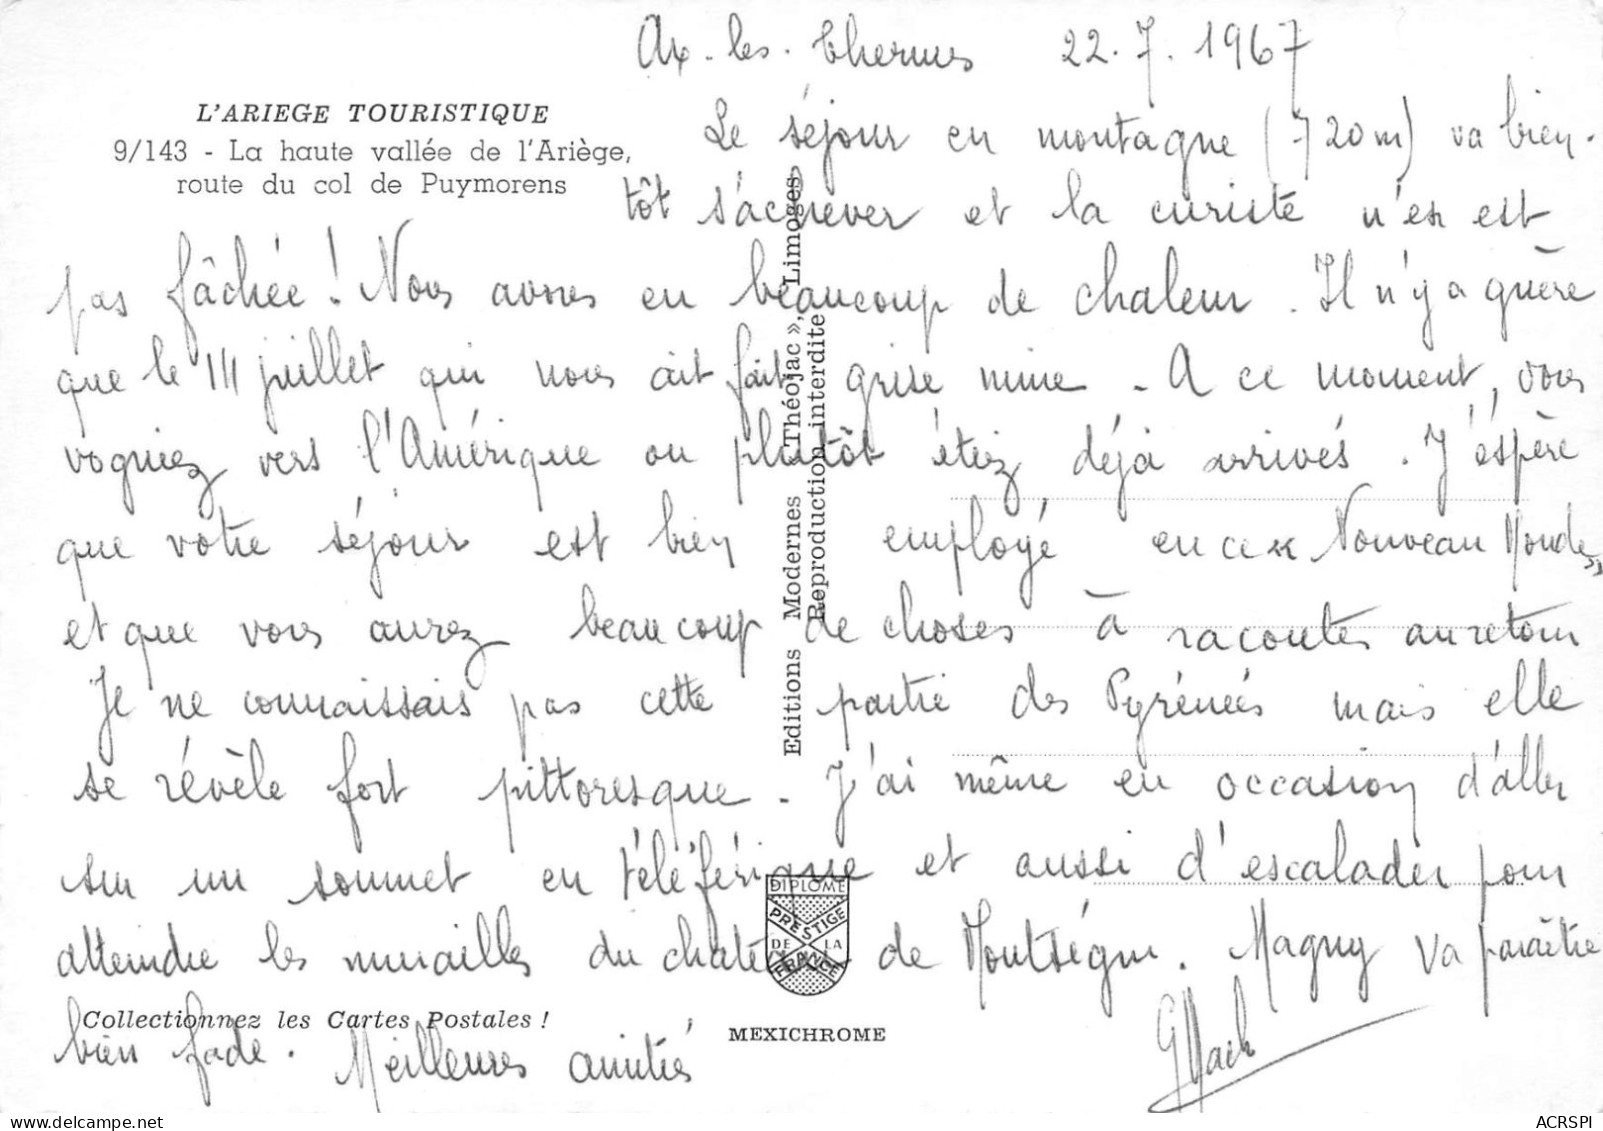 Ax-les-Thermes 22.7.1967
L'ARIEGE TOURISTIQUE
9/143 - La haute vallée de l'Ariège,
route du col de Puymorens
Le séjour en montagne (720m) va bien-
tôt s'achever et la curiste n'en est
pas fâchée ! Nous avons eu beaucoup de chaleur. Il n'y a guère
que le 14 juillet qui nous ait fait grise mine - A ce moment, vous
voguiez vers l'Amérique ou plutôt étiez déjà arrivés. J'espère
que votre séjour est bien employé en ce « Nouveau Monde »
et que vous aurez beaucoup de choses à raconter au retour
Je ne connaissais pas cette partie des Pyrénées mais elle
se révèle fort pittoresque - J'ai même eu occasion d'aller
sur un sommet en téléférique et aussi d'escalader pour
atteindre les murailles du château de Montségur. Magny va paraître
bien fade. Meilleures amitiés
Editions Modernes « Théojac », Limoges
Reproduction interdite
DIPLOME
PRESTIGE
DE LA
FRANCE
Collectionnez les Cartes Postales !
MEXICHROME
ACRSPI